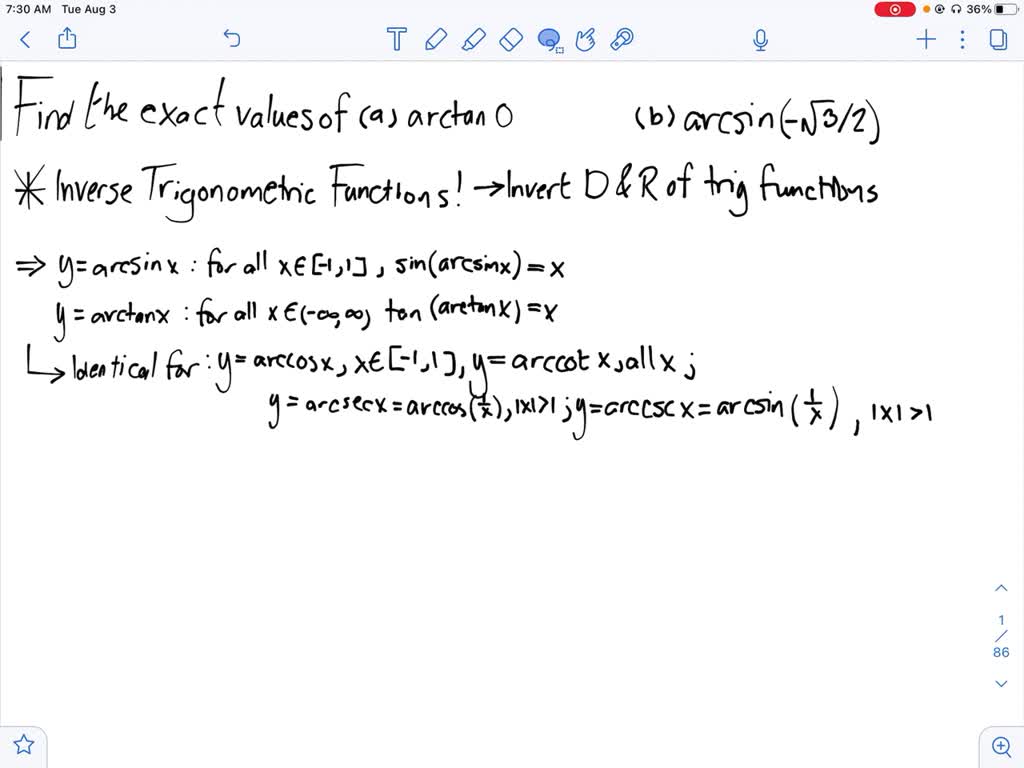 7:30 AM Tue Aug 3 36%
Find the exact values of (a) arctan 0 (b) arcsin(-√3/2)
* Inverse Trigonometric Functions! → Invert D & R of trig functions
⇒ y = arcsin x : for all x ∈ [-1,1], sin(arcsin x) = x
y = arctan x : for all x ∈ (-∞,∞) tan (arctan x) = x
↳ Identical for : y = arccos x, x ∈ [-1,1], y = arccot x, all x ;
y = arcsec x = arccos(1/x), |x| > 1 ; y = arccsc x = arcsin (1/x), |x| > 1
1
/
86